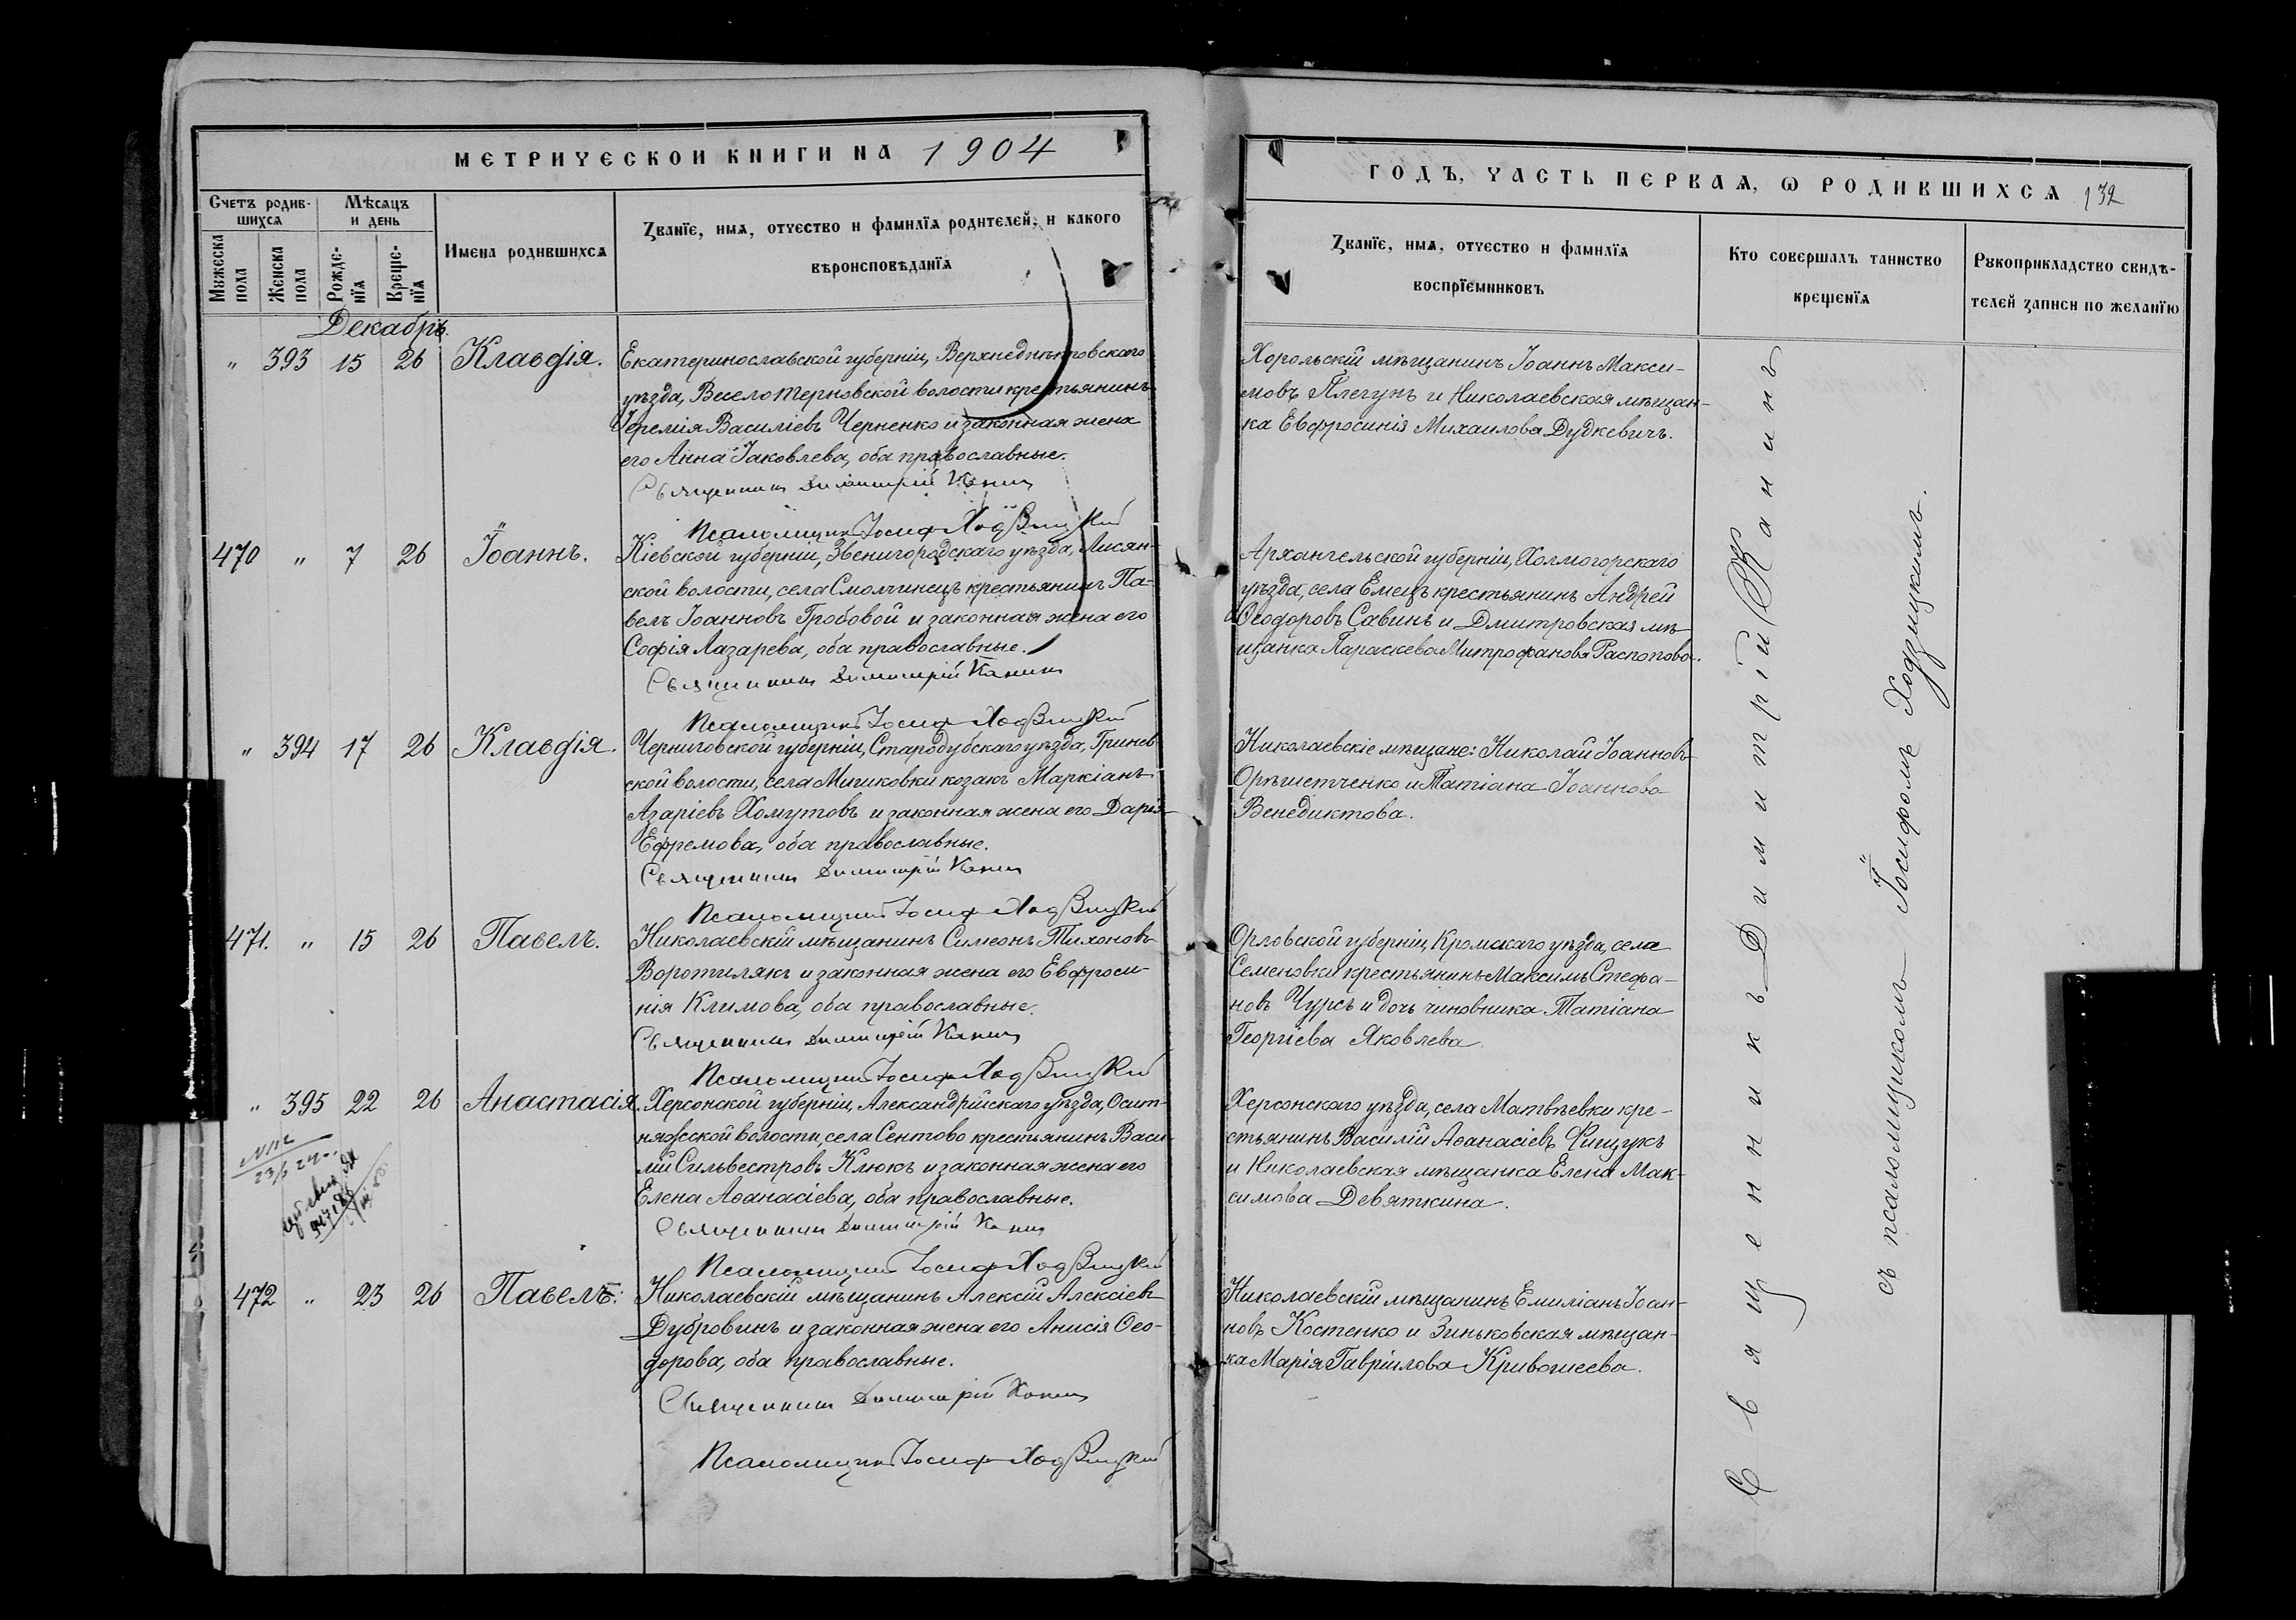 МЕТРИЧЕСКОЙ КНИГИ НА 1904
Счетъ родив-
шихся
Мѣсяцъ
и день
Мужеска
пола
Женска
пола
Рожде-
нїя
Креще-
нїя
Имена родившихся
Званїе, имя, отчество и фамилїя родителей, и какого
вѣроисповѣданїя
Декабрь.
" 393 15 26 Клавдія.
Екатеринославской губерніи, Верхнеднѣпровскаго
уѣзда, Веселотерновской волости крестьянинъ
Іеремія Василіевъ Черненко и законная жена
его Анна Іаковлева, оба православные.
Священникъ Димитрій Канинъ
Псаломщикъ Іосифъ Ходзицкій
470 " 7 26 Іоаннъ.
Кіевской губерніи, Звенигородскаго уѣзда, Лисян-
ской волости, села Смолчинецъ крестьянинъ Па-
велъ Іоанновъ Гробовой и законная жена его
Софія Лазарева, оба православные.
Священникъ Димитрій Канинъ
Псаломщикъ Іосифъ Ходзицкій
" 394 17 26 Клавдія.
Черниговской губерніи, Стародубскаго уѣзда, Гринев-
ской волости, села Мишковки козакъ Маркіанъ
Азаріевъ Хомутовъ и законная жена его Дарія
Ефремова, оба православные.
Священникъ Димитрій Канинъ
Псаломщикъ Іосифъ Ходзицкій
471. " 15 26 Павелъ.
Николаевскій мѣщанинъ Симеонъ Тихоновъ
Воротилякъ и законная жена его Евфроси-
нія Климова, оба православные.
Священникъ Димитрій Канинъ
Псаломщикъ Іосифъ Ходзицкій
" 395 22 26 Анастасія.
Херсонской губерніи, Александрійскаго уѣзда, Осит-
няжской волости, села Сентово крестьянинъ Васи-
лій Сильвестровъ Клюкъ и законная жена его
Елена Аѳанасіева, оба православные.
Священникъ Димитрій Канинъ
Псаломщикъ Іосифъ Ходзицкій
472 " 23 26 Павелъ.
Николаевскій мѣщанинъ Алексій Алексіевъ
Дубровинъ и законная жена его Анисія Ѳео-
дорова, оба православные.
Священникъ Димитрій Канинъ
Псаломщикъ Іосифъ Ходзицкій
ГОДЪ, ЧАСТЬ ПЕРВАЯ, Ѡ РОДИВШИХСЯ 132
Званїе, имя, отчество и фамилїя
воспрїемниковъ
Кто совершалъ таинство
крещенїя
Рукоприкладство свидѣ-
телей записи по желанїю
Хорольскій мѣщанинъ Іоаннъ Макси-
мовъ Плегунъ и Николаевская мѣщан-
ка Евфросинія Михаилова Дудкевичъ.
Архангельской губерніи, Холмогорскаго
уѣзда, села Емецъ крестьянинъ Андрей
Ѳеодоровъ Савинъ и Дмитровская мѣ-
щанка Параскева Митрофанова Распопова.
Николаевскіе мѣщане: Николай Іоанновъ
Орѣшетченко и Татіана Іоаннова
Венедиктова.
Орловской губерніи, Кромскаго уѣзда, села
Семеновки крестьянинъ Максимъ Стефа-
новъ Чурсъ и дочь чиновника Татіана
Георгіева Яковлева.
Херсонскаго уѣзда, села Матвѣевки кре-
стьянинъ Василій Аѳанасіевъ Фищукъ
и Николаевская мѣщанка Елена Мак-
симова Девяткина.
Николаевскій мѣщанинъ Емиліанъ Іоан-
новъ Костенко и Зиньковская мѣщан-
ка Марія Гавріилова Кривошеева.
Священникъ Димитрій Канинъ
съ псаломщикомъ Іосифомъ Ходзицкимъ.